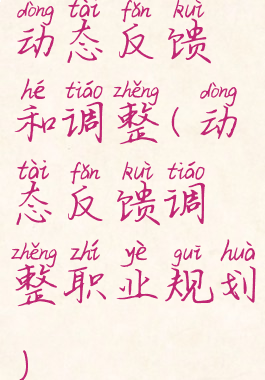 dòng tài fǎn kuì
动态反馈
hé tiáo zhěng dòng
和调整(动
tài fǎn kuì tiáo
态反馈调
zhěng zhí yè guī huà
整职业规划
)